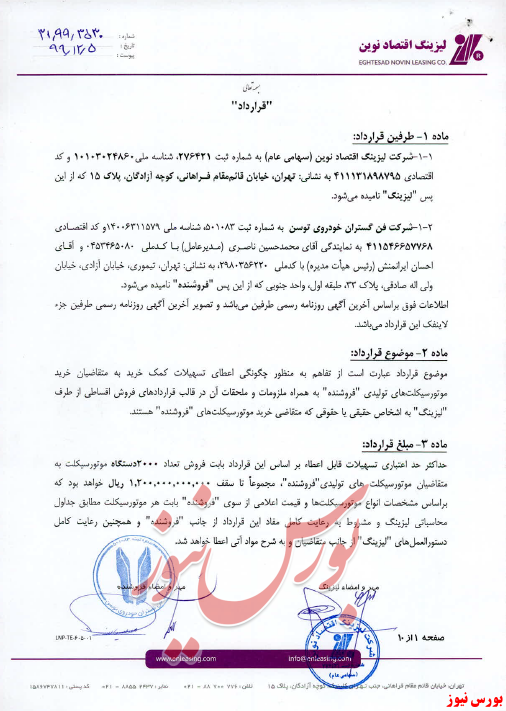 لیزینگ اقتصاد نوین
EGHTESAD NOVIN LEASING CO.
شماره :
تاریخ :
پیوست :
۹۹/۱۲/۵
بسمه تعالی
"قرارداد"
ماده ۱- طرفین قرارداد:
۱-۱-شرکت لیزینگ اقتصاد نوین (سهامی عام) به شماره ثبت ۲۷۶۴۲۱، شناسه ملی ۱۰۱۰۳۰۲۴۸۶۰ و کد
اقتصادی ۴۱۱۱۳۱۸۹۸۷۹۵ به نشانی: تهران، خیابان قائم‌مقام فراهانی، کوچه آزادگان، پلاک ۱۵ که از این
پس "لیزینگ" نامیده می‌شود.
۱-۲-شرکت فن گستران خودروی توسن به شماره ثبت ۵۰۱۰۸۳، شناسه ملی ۱۴۰۰۶۳۱۱۵۷۹و کد اقتصادی
۴۱۱۵۴۶۶۵۷۷۶۸ به نمایندگی آقای محمدحسین ناصری (مدیرعامل) با کدملی ۰۴۵۳۴۶۵۰۸۰ و آقای
احسان ایرانمنش (رئیس هیأت مدیره) با کدملی ۲۹۸۰۳۵۶۲۲۰، به نشانی: تهران، تیموری، خیابان آزادی، خیابان
ولی اله صادقی، پلاک ۳۳، طبقه اول، واحد جنوبی که از این پس "فروشنده" نامیده می‌شود.
اطلاعات فوق براساس آخرین آگهی روزنامه رسمی طرفین می‌باشد و تصویر آخرین آگهی روزنامه رسمی طرفین جزء
لاینفک این قرارداد می‌باشد.
ماده ۲- موضوع قرارداد:
موضوع قرارداد عبارت است از تفاهم به منظور چگونگی اعطای تسهیلات کمک خرید به متقاضیان خرید
موتورسیکلت‌های تولیدی "فروشنده" به همراه ملزومات و ملحقات آن در قالب قراردادهای فروش اقساطی از طرف
"لیزینگ" به اشخاص حقیقی یا حقوقی که متقاضی خرید موتورسیکلت‌های "فروشنده" هستند.
ماده ۳- مبلغ قرارداد:
حداکثر حد اعتباری تسهیلات قابل اعطاء بر اساس این قرارداد بابت فروش تعداد ۲۰۰۰دستگاه موتورسیکلت به
متقاضیان موتورسیکلت های تولیدی"فروشنده"، مجموعاً تا سقف ۱,۲۰۰,۰۰۰,۰۰۰,۰۰۰ ریال خواهد بود که
براساس مشخصات انواع موتورسیکلت‌ها و قیمت اعلامی از سوی "فروشنده" بابت هر موتورسیکلت مطابق جداول
محاسباتی لیزینگ و مشروط به رعایت کامل مفاد این قرارداد از جانب "فروشنده" و همچنین رعایت کامل
دستورالعمل‌های "لیزینگ" از جانب متقاضیان و به شرح مواد آتی اعطا خواهد شد.
بورس نیوز
مهر و امضاء لیزینگ
مهر و امضاء فروشنده
شرکت لیزینگ اقتصاد نوین
(سهامی عام)
صفحه ۱ از ۱۰
www.enleasing.com
info@enleasing.com
تهران، خیابان قائم مقام فراهانی، کوچه آزادگان، پلاک ۱۵
بورس نیوز